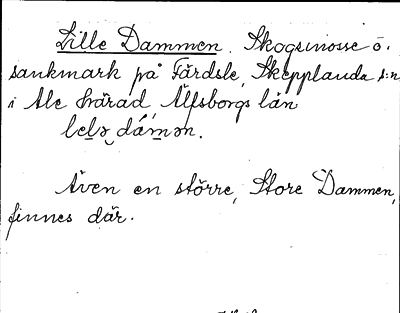 Lille Dammen. Skogsmosse o.
sankmark på Färdsle, Skepplanda s:n
i Ale härad, Älfsborgs län
lelə dámən.
Även en större, Store Dammen,
finnes där.